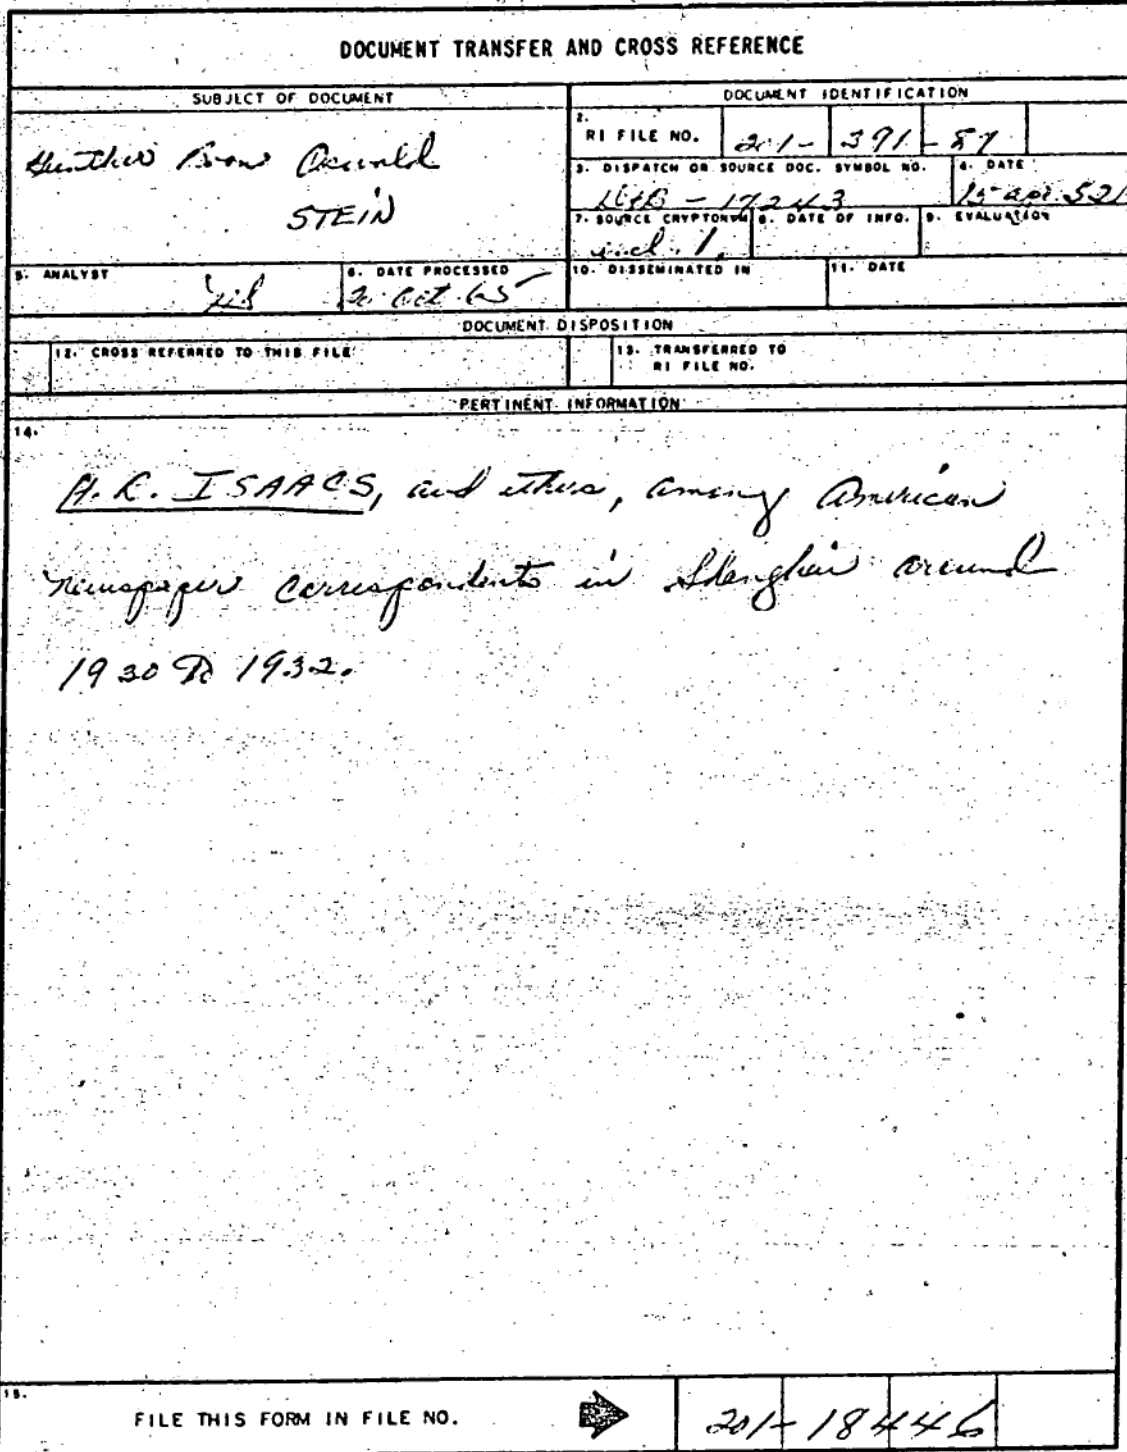 DOCUMENT TRANSFER AND CROSS REFERENCE
SUBJECT OF DOCUMENT
DOCUMENT IDENTIFICATION
2.
RI FILE NO. 201- 391-87
3. DISPATCH OR SOURCE DOC. SYMBOL NO. 4. DATE
- 17243 15 apr 52
Gunther
STEIN
7. SOURCE CRYPTONYM 8. DATE OF INFO. 9. EVALUATION
incl. 1,
5. ANALYST 6. DATE PROCESSED 10. DISSEMINATED IN 11. DATE
20 Oct 65
DOCUMENT DISPOSITION
12. CROSS REFERRED TO THIS FILE 13. TRANSFERRED TO
RI FILE NO.
PERTINENT INFORMATION
14.
H.R. ISAACS, and others, among American
newspaper correspondents in Shanghai around
1930 to 1932.
15.
FILE THIS FORM IN FILE NO. 201-18446